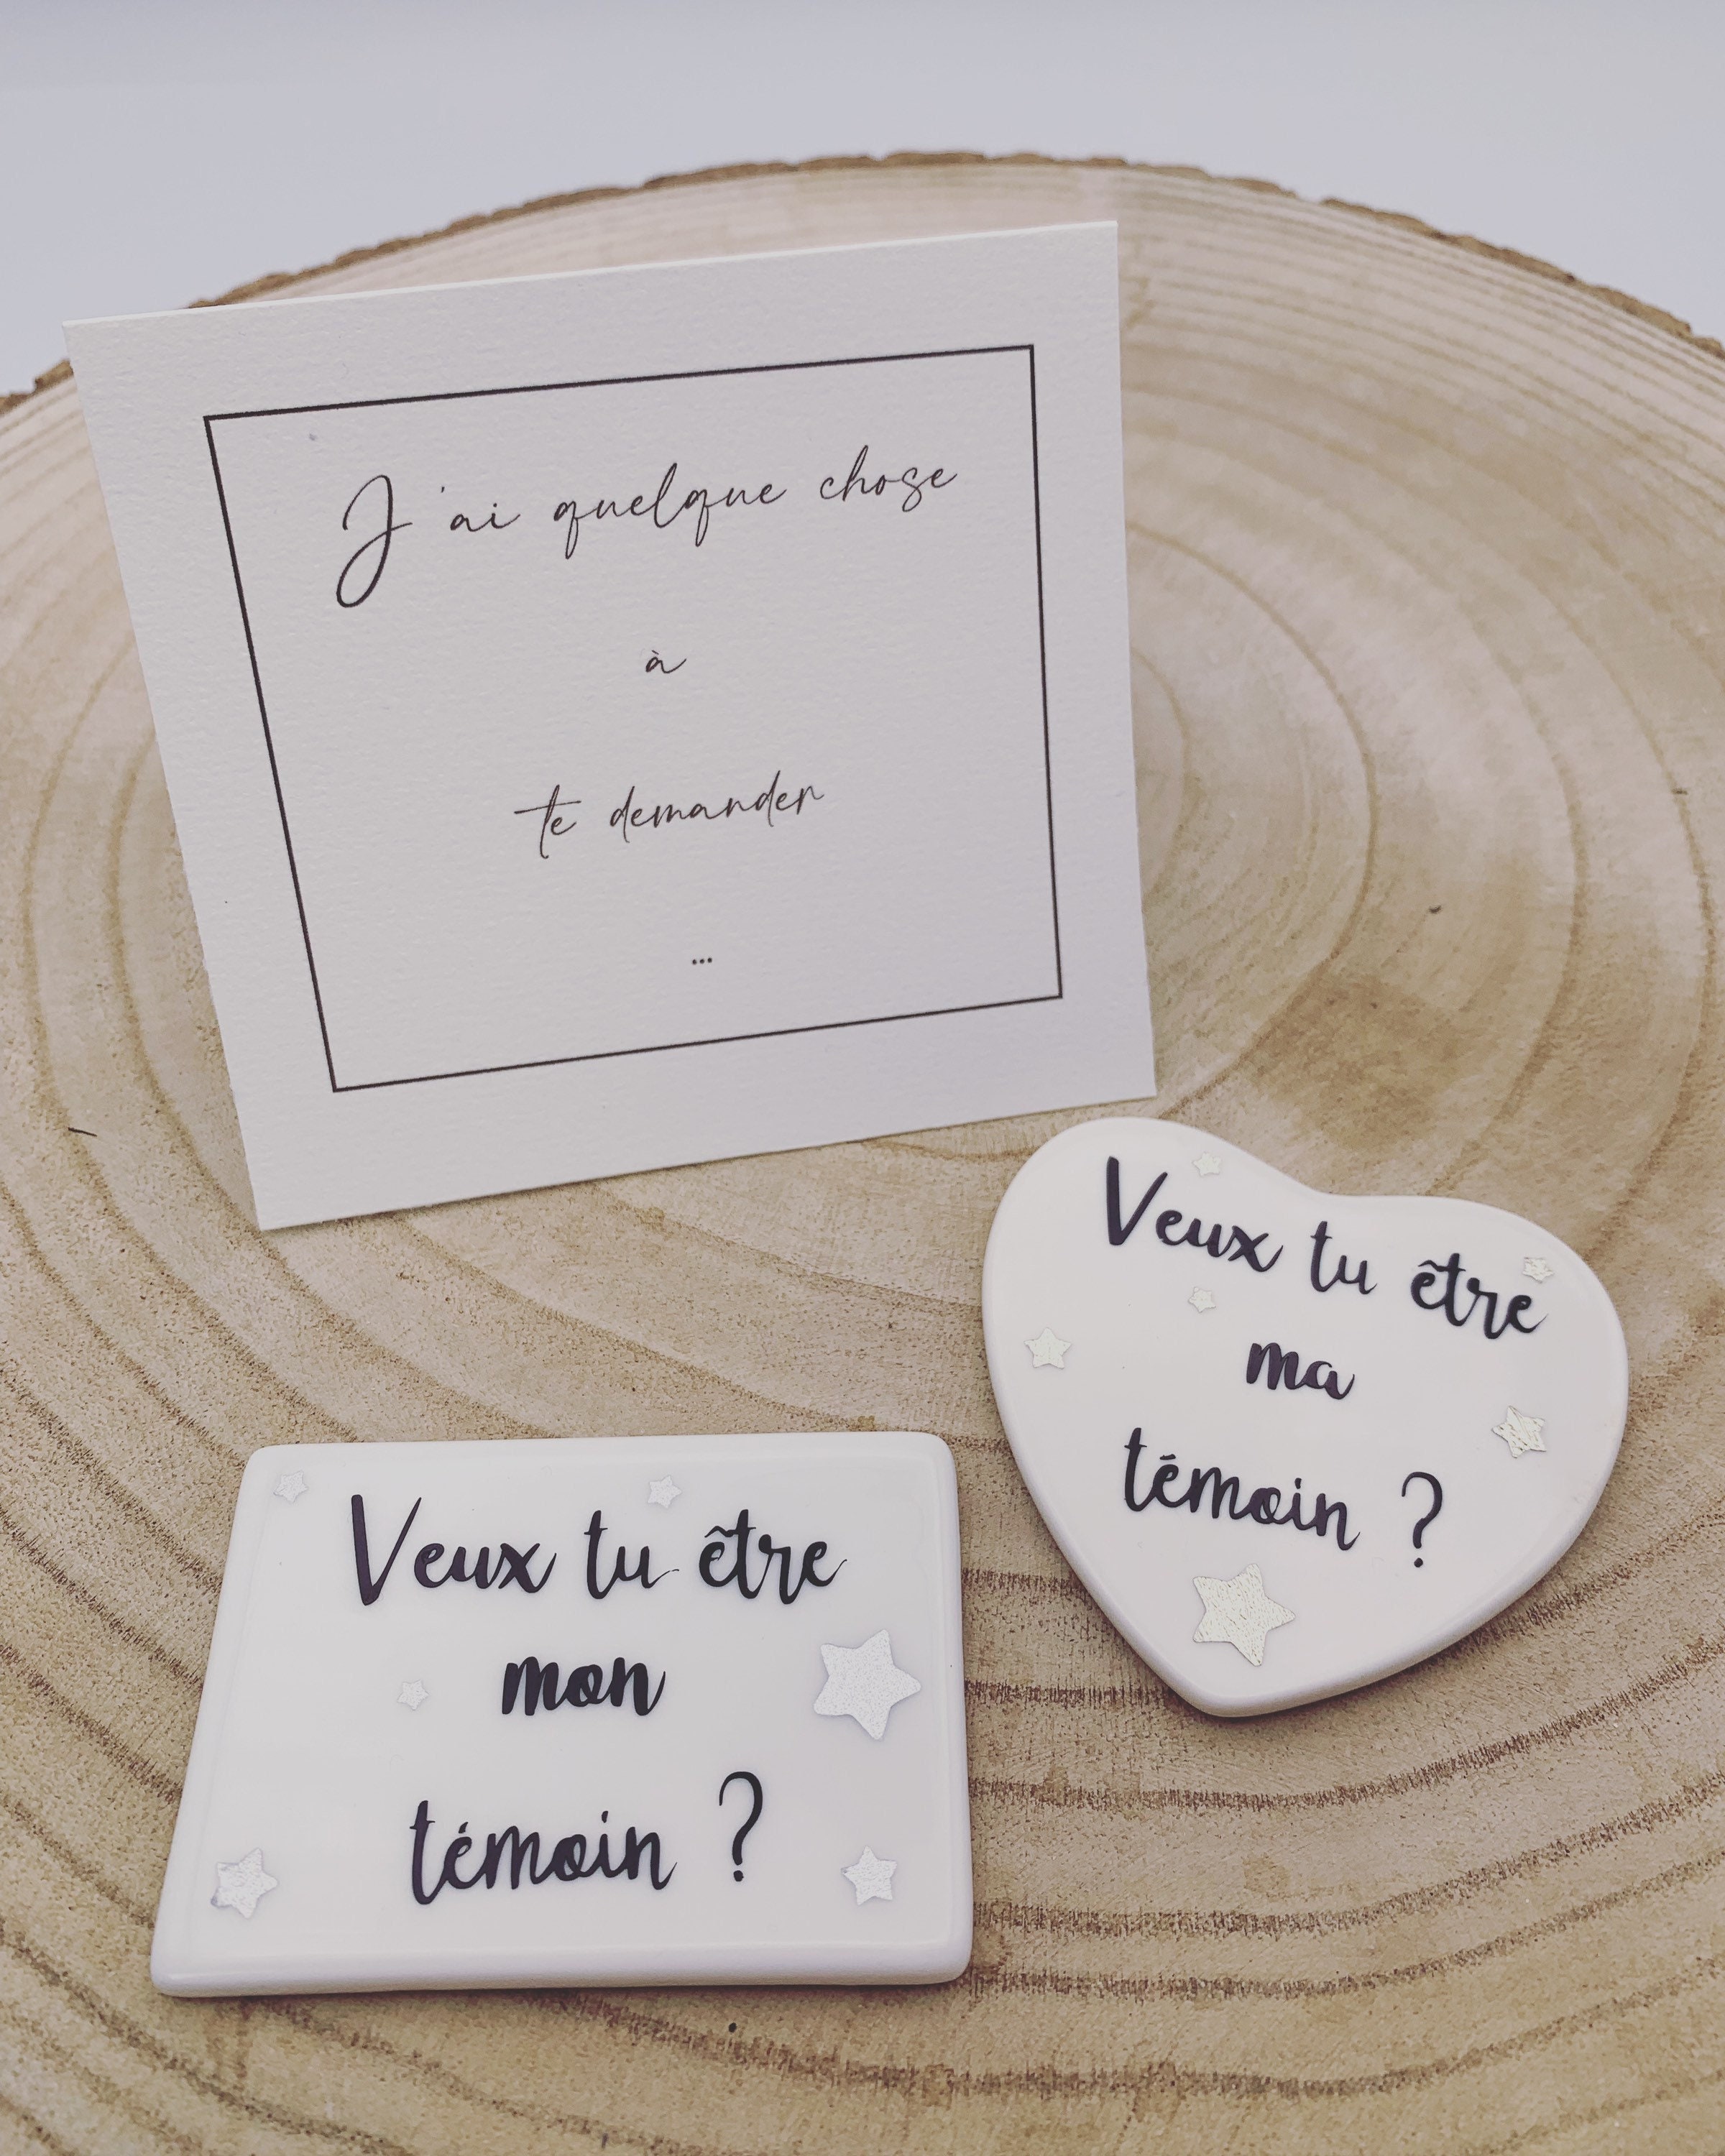 J'ai quelque chose
à
te demander
...
Veux tu être
ma
témoin ?
Veux tu être
mon
témoin ?